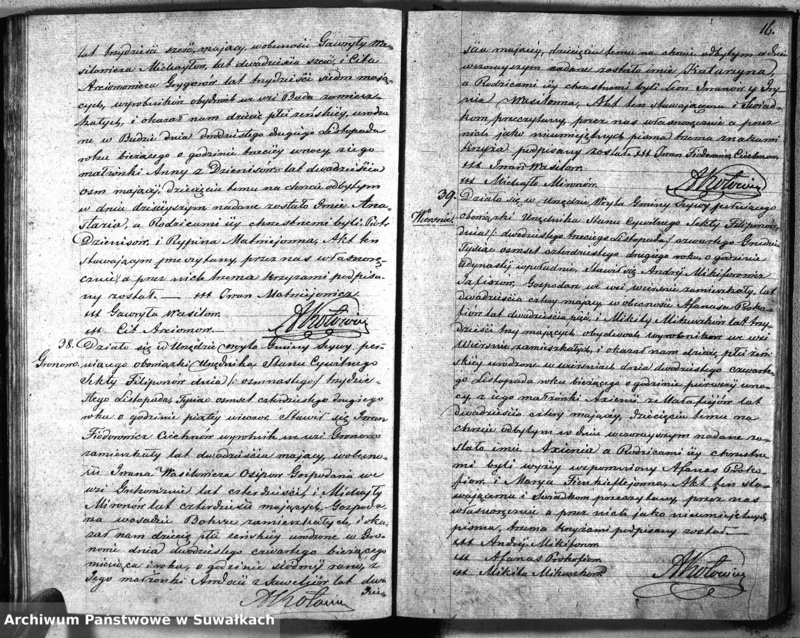 lat trzydzieści sześć, mający, w obecności Gawryły Wa-
silowicza Michajłow, lat dwadzieścia sześć, i Cita
Arciomowicza Grygorów lat trzydzieści siedm mają-
cych, wyrobników obydwóch we wsi Buda zamiesz-
kałych, i okazał nam dziecię płci żeńskiej, urodzo-
ne w Budzie dnia dwudziestego drugiego Listopada
roku bieżącego o godzinie trzeciej w nocy z jego
małżonki Anny z Dzienisów lat dwadzieścia
osm mającej, dziecięciu temu na chrzcie odbytym
w dniu dzisiejszym nadane zostało Imie Anas-
tazia, a Rodzicami jej chrzestnemi byli Piotr
Dzienisow, i Rypina Matwiejowna, Akt ten
stawającym przeczytany, przez nas własno-
ręcznie, a przez nich trzema krzyżami podpisa-
ny został. — ††† Iwan Matwiejowicz
††† Gawryła Wasilow.
††† Cit Arciomow.
38.
Gronowo
Działo się w Urzędzie Wójta Gminy Sejwy peł-
niącego obowiązki Urzędnika Stanu Cywilnego
Sekty Filiponów dnia / osmnastego / trzydzie-
stego Listopada, Tysiąc osmset czterdziestego drugiego
roku o godzinie piątej wieczor, Stawił się Iwan
Fiodorowicz Ciechnow wyrobnik we wsi Gronowo
zamieszkały lat dwadzieścia mający, w obecno-
ści Iwana Wasilowicza Osipow Gospodarza we
wsi Grekowznie lat czterdzieści, i Michajły
Mironów lat czterdzieści mających, Gospoda-
rza w osadzie Boksze zamieszkałych, i oka-
zał nam dziecię płci żeńskiej urodzone w Gro-
nowie dnia dwudziestego czwartego bieżącego
miesiąca i roku, o godzinie siódmej rano, z
Jego małżonki Awdoii z Saweljow lat dwa-
dzie-
16.
ścia mającej, dziecięciu temu na chrzcie odbytym w dniu
wczorajszym nadane zostało imie Katarzyna
a Rodzicami jej chrzestnemi byli Sion Iwanow i Iry-
nia Wasilowna, Akt ten stawającemu i Świad-
kom przeczytany, przez nas własnoręcznie a przez
nich jako nieumiejętnych pisma trzema znakami
krzyża podpisany został. ††† Iwan Fiodorowicz Ciechnow.
††† Iwan Wasilow.
††† Michajło Mironów.
39.
Wiersnie
Działo się w Urzędzie Wójta Gminy Sejwy pełniącego
obowiązki Urzędnika Stanu Cywilnego Sekty Filiponów,
dnia / dwudziestego trzeciego Listopada / czwartego Grudnia
Tysiąc osmset czterdziestego drugiego roku o godzinie
jedynastej w południe, Stawił się Andrzej Mikiforowicz
Gospodarz we wsi Wiersnie zamieszkały, lat
dwadzieścia cztery mający w obecności Afanasa Proko-
fiow lat dwadzieścia pięć, i Mikity Mikuszkow lat trzy-
dzieści trzy mających, obydwóch wyrobników we wsi
Wiersnie zamieszkałych, i okazał nam dziecię płci żeń-
skiej urodzone w Wiersniach dnia dwudziestego czwarte-
go Listopada roku bieżącego o godzinie pierwszej w no-
cy, z jego małżonki Axienii z Matafijów lat
dwadzieścia cztery mającej, Dziecięciu temu na
chrzcie odbytym w dniu wczorajszym nadane zo-
stało imie Axienia a Rodzicami jej chrzestne-
mi byli wyżej wspomniony Afanas Proko-
fiow, i Marya Akt ten sta-
wającemu i Świadkom przeczytany, przez nas
własnoręcznie a przez nich jako nieumiejętnych
pisma, trzema krzyżami podpisany został —
††† Andrzej Mikiforow.
††† Afanas Prokofiow
††† Mikita Mikuszkow.
Archiwum Państwowe w Suwałkach